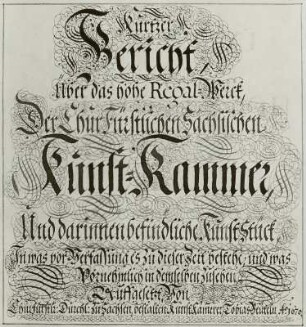 Kurtzer
Bericht,
Über das hohe Regal-Werck,
Der Chur Fürstlichen Sächsischen
Kunst-Kammer,
Und darinnen befindliche Kunst Stück,
In was vor Verfassung es zu dieser Zeit bestehe, und was
Vornehmlich in demselben zusehen
Auffgesetzt, Von
Churfürstl: Durchl: zu Sachsen, bestalten Kunst Kämmerer, Tobias Beuteln